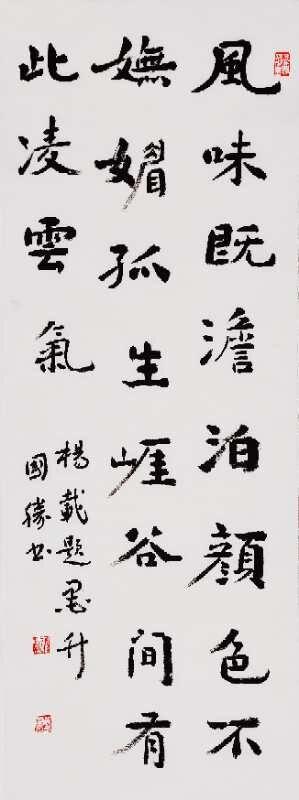 風味既澹泊顏色不
嫵媚孤生崕谷間有
此凌雲氣
楊載題墨竹
國勝書